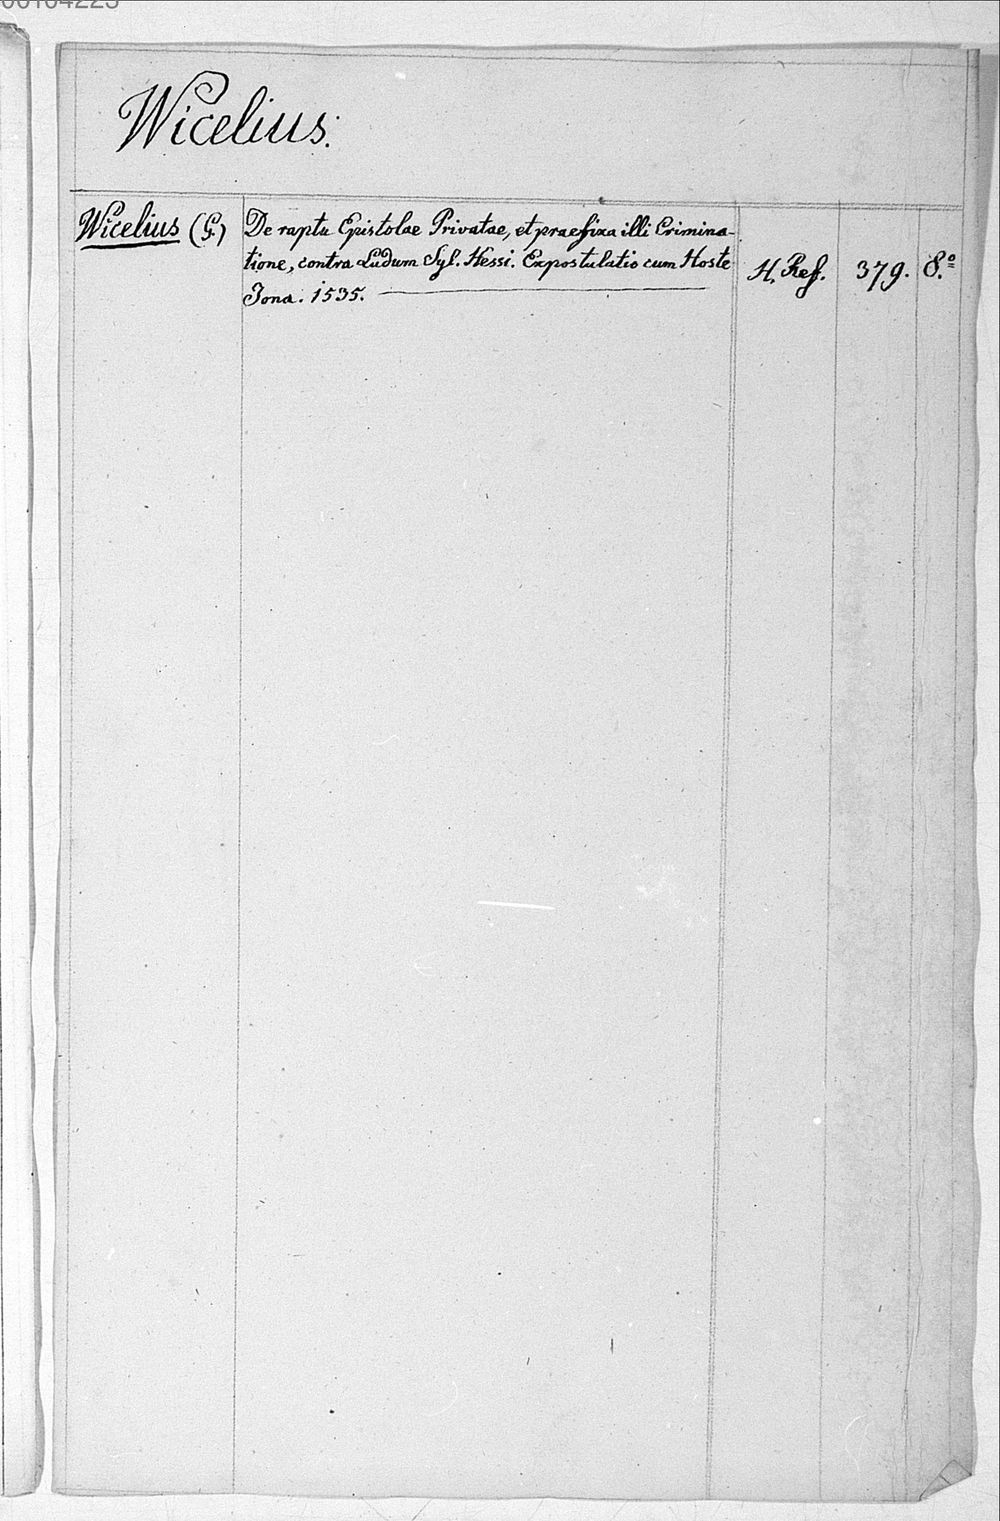 Wicelius.
Wicelius (G.) De raptu Epistolae Privatae, et praefixa illi Crimina-
tione, contra Ludum Syl. Hessi. Expostulatio cum Hoste
Jona. 1535. H. Ref. 379. 8.º